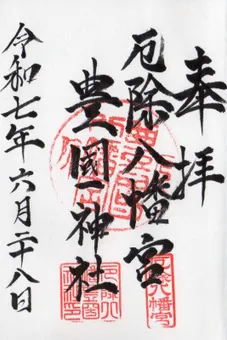 奉拝
厄除八幡宮
豊國神社
令和七年六月二十八日